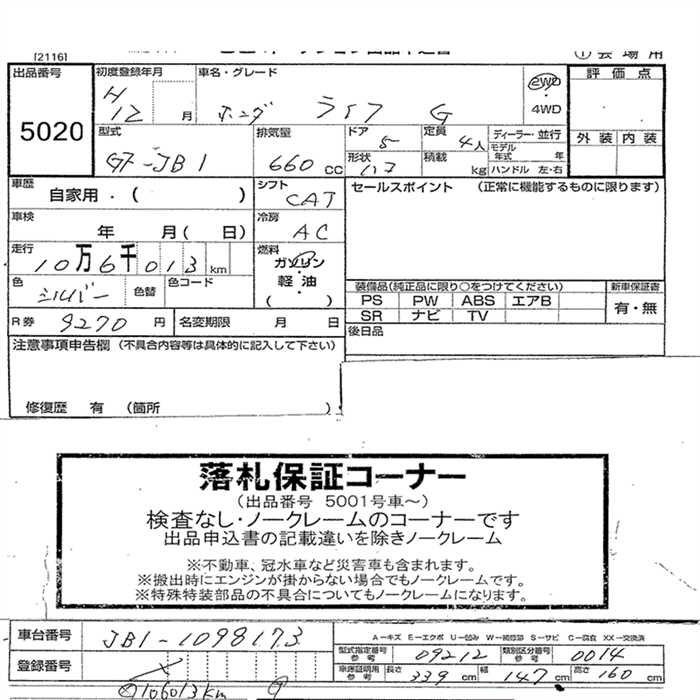 [21161]
① 会 場 用
出品番号 5020
初度登録年月 H 12 月
車名・グレード ホンダ ライフ G
2WD
4WD
評 価 点
外 装 内 装
型式 GF-JB1
排気量 660 cc
ドア 5
定員 4人
形状 ハコ
積載 kg
ディーラー・並行
モデル年式 年
ハンドル 左・右
車歴 自家用・( )
シフト CAT
セールスポイント (正常に機能するものに限ります)
車検 年 月( 日)
冷房 AC
走行 10万6千013km
燃料 ガソリン・軽油・( )
色 シルバー 色替 色コード
装備品(純正品に限り○をつけてください) 新車保証書
PS PW ABS エアB 有・無
SR ナビ TV
R券 9270 円 名変期限 月 日
後日品
注意事項申告欄 (不具合内容等は具体的に記入して下さい)
修復歴 有 (箇所 )
落札保証コーナー
(出品番号 5001号車~)
検査なし・ノークレームのコーナーです
出品申込書の記載違いを除きノークレーム
※不動車、冠水車など災害車も含まれます。
※搬出時にエンジンが掛からない場合でもノークレームです。
※特殊特装部品の不具合についてもノークレームになります。
車台番号 JB1-1098173
A-キズ E-エクボ U-凹み W-補修跡 S-サビ C-腐食 XX-交換済
型式指定番号 参考 09212 類別区分番号 参考 0014
登録番号
車庫証明用 参考 長さ 339 cm 幅 147 cm 高さ 160 cm
106013km